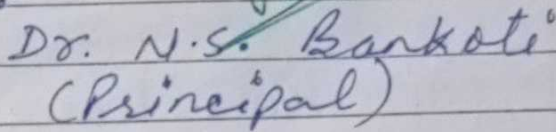 Dr. N.S. Bankoti
(Principal)